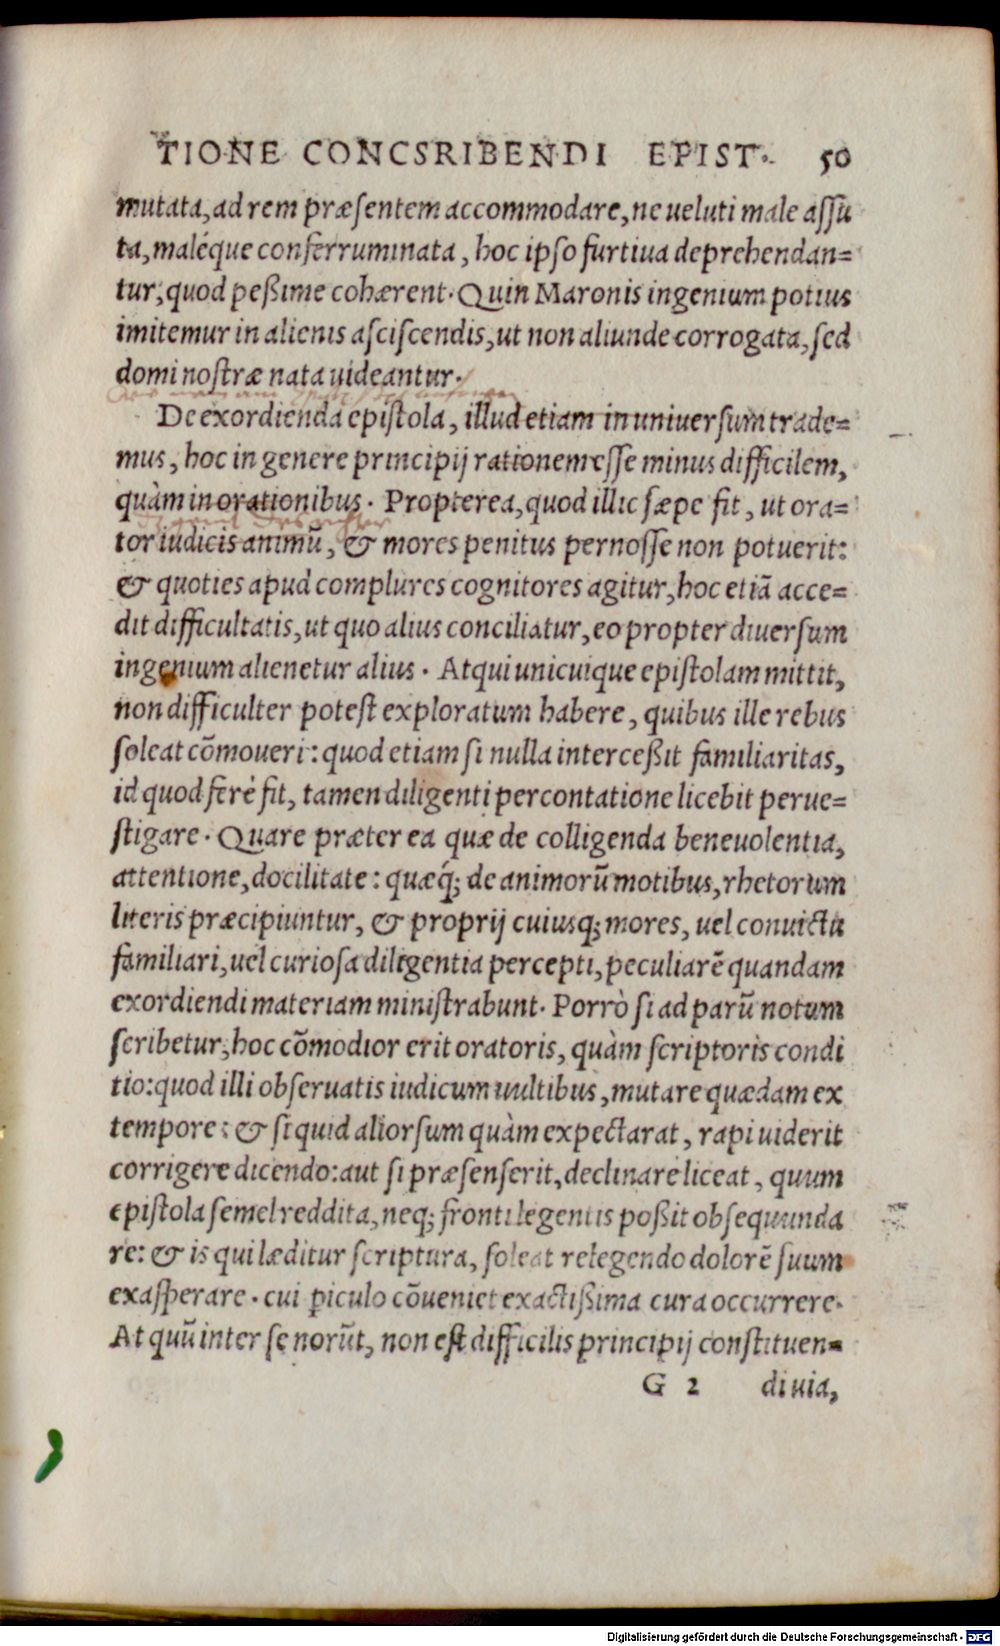 TIONE CONCSRIBENDI EPIST. 50
mutata, ad rem præsentem accommodare, ne ueluti male assu
ta, maléque conferruminata, hoc ipso furtiua deprehendan=
tur, quod peßime cohærent. Quin Maronis ingenium potius
imitemur in alienis asciscendis, ut non aliunde corrogata, sed
domi nostræ nata uideantur.
De exordienda epistola, illud etiam in uniuersum trade=
mus, hoc in genere principij rationem esse minus difficilem,
quàm in orationibus. Propterea, quod illic sæpe fit, ut ora=
tor iudicis animū, & mores penitus pernosse non potuerit:
& quoties apud complures cognitores agitur, hoc etiā acce=
dit difficultatis, ut quo alius conciliatur, eo propter diuersum
ingenium alienetur alius. At qui unicuique epistolam mittit,
non difficulter potest exploratum habere, quibus ille rebus
soleat cōmoueri: quod etiam si nulla interceßit familiaritas,
id quod ferè fit, tamen diligenti percontatione licebit perue=
stigare. Quare præter ea quæ de colligenda beneuolentia,
attentione, docilitate: quæq́; de animorū motibus, rhetorum
literis præcipiuntur, & proprij cuiusq; mores, uel conuictu
familiari, uel curiosa diligentia percepti, peculiarē quandam
exordiendi materiam ministrabunt. Porrò si ad parū notum
scribetur, hoc cōmodior erit oratoris, quàm scriptoris condi
tio: quod illi obseruatis iudicum uultibus, mutare quædam ex
tempore: & si quid aliorsum quàm expectarat, rapi uiderit
corrigere dicendo: aut si præsenserit, declinare liceat, quum
epistola semel reddita, neq; fronti legentis poßit obsequunda
re: & is qui læditur scriptura, soleat relegendo dolorē suum
exasperare. cui ꝑiculo cōueniet exactißima cura occurrere.
At quū inter se norūt, non est difficilis principij constituen=
G 2 di uia,
Digitalisierung gefördert durch die Deutsche Forschungsgemeinschaft - DFG